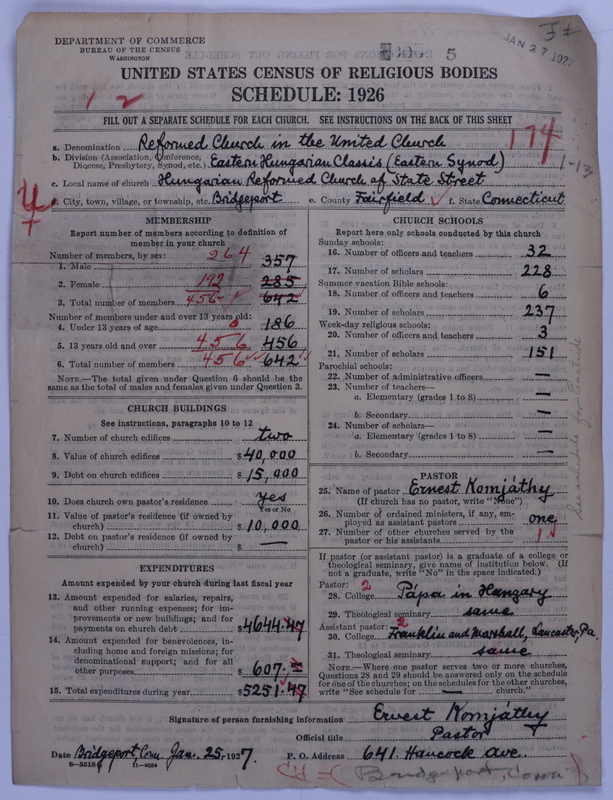 DEPARTMENT OF COMMERCE
BUREAU OF THE CENSUS
WASHINGTON
5
JAN 27 192
UNITED STATES CENSUS OF RELIGIOUS BODIES
SCHEDULE: 1926
1 2
FILL OUT A SEPARATE SCHEDULE FOR EACH CHURCH. SEE INSTRUCTIONS ON THE BACK OF THIS SHEET
a. Denomination Reformed Church in the United Church
174
b. Division (Association, Conference, Diocese, Presbytery, Synod, etc.) Eastern Hungarian Classis (Eastern Synod)
1-13
c. Local name of church Hungarian Reformed Church of State Street
d. City, town, village, or township, etc. Bridgeport e. County Fairfield f. State Connecticut
MEMBERSHIP
Report number of members according to definition of
member in your church
Number of members, by sex: 264
1. Male 357
2. Female 192 285
3. Total number of members 456 642
Number of members under and over 13 years old:
4. Under 13 years of age 0 186
5. 13 years old and over 456 456
6. Total number of members 456 642
NOTE.—The total given under Question 6 should be
same as the total of males and females given under Question 3.
CHURCH BUILDINGS
See instructions, paragraphs 10 to 12
7. Number of church edifices two
8. Value of church edifices $40,000
9. Debt on church edifices $15,000
10. Does church own pastor's residence yes
Yes or No
11. Value of pastor's residence (if owned by
church) $10,000
12. Debt on pastor's residence (if owned by
church) $ —
EXPENDITURES
Amount expended by your church during last fiscal year
13. Amount expended for salaries, repairs,
and other running expenses; for im-
provements or new buildings; and for
payments on church debt $4644.47
14. Amount expended for benevolences, in-
cluding home and foreign missions; for
denominational support; and for all
other purposes 607.=
15. Total expenditures during year $5251.47
CHURCH SCHOOLS
Report here only schools conducted by this church
Sunday schools:
16. Number of officers and teachers 32
17. Number of scholars 228
Summer vacation Bible schools:
18. Number of officers and teachers 6
19. Number of scholars 237
Week-day religious schools:
20. Number of officers and teachers 3
21. Number of scholars 151
Parochial schools:
22. Number of administrative officers —
23. Number of teachers—
a. Elementary (grades 1 to 8) —
b. Secondary —
24. Number of scholars—
a. Elementary (grades 1 to 8) —
b. Secondary —
PASTOR
25. Name of pastor Ernest Komjáthy
(If church has no pastor, write "None")
26. Number of ordained ministers, if any, em-
ployed as assistant pastors one
27. Number of other churches served by the
pastor or his assistants 1
If pastor (or assistant pastor) is a graduate of a college or
theological seminary, give name of institution below. (If
not a graduate, write "No" in the space indicated.)
Pastor: 2
28. College Pápa in Hungary
29. Theological seminary same
Assistant pastor: 2
30. College Franklin and Marshall, Lancaster, Pa.
31. Theological seminary same
NOTE.—Where one pastor serves two or more churches,
Questions 28 and 29 should be answered only on the schedule
for one of the churches; on the schedules for the other churches,
write "See schedule for — church."
See schedule for
Signature of person furnishing information Ernest Komjáthy
Official title Pastor
Date Bridgeport, Conn. Jan. 25, 1927. P. O. Address 641. Hancock ave.
8-5518 11-9084
CH = (Bridgeport, Conn)